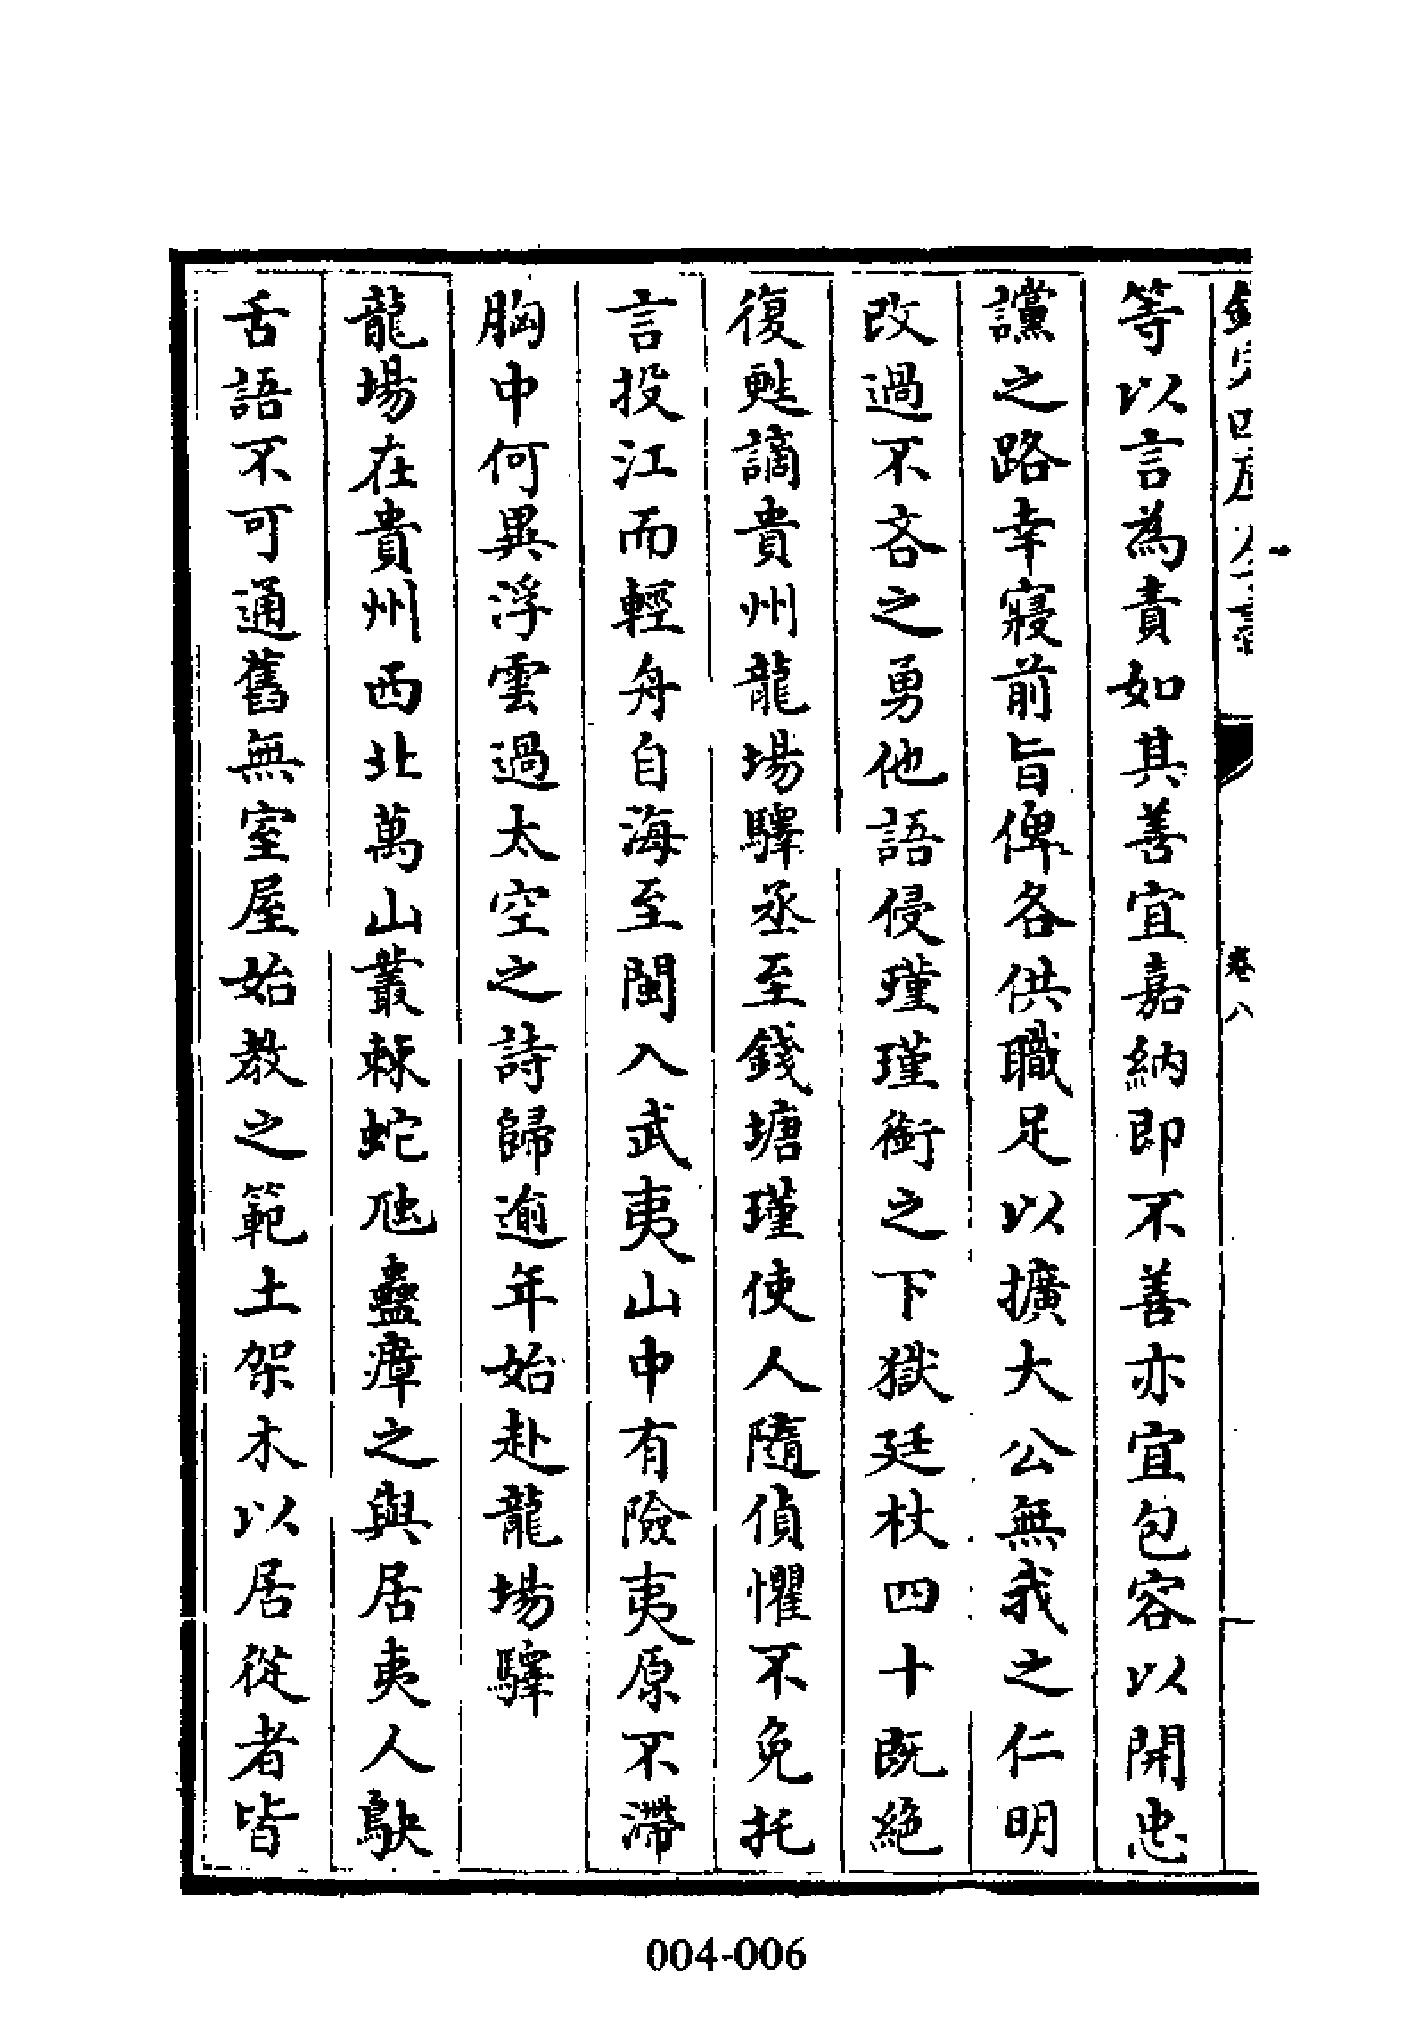 欽定四庫全書
卷八
等以言為責如其善宜嘉納即不善亦宜包容以開忠
讜之路幸寢前旨俾各供職足以擴大公無我之仁明
改過不吝之勇他語侵瑾瑾銜之下獄廷杖四十既絶
復甦謫貴州龍場驛丞至錢塘瑾使人隨偵懼不免托
言投江而輕舟自海至閩入武夷山中有險夷原不滯
胸中何異浮雲過太空之詩歸逾年始赴龍場驛
龍場在貴州西北萬山叢棘蛇虺蠱瘴之與居夷人鴃
舌語不可通舊無室屋始教之範土架木以居從者皆
004-006